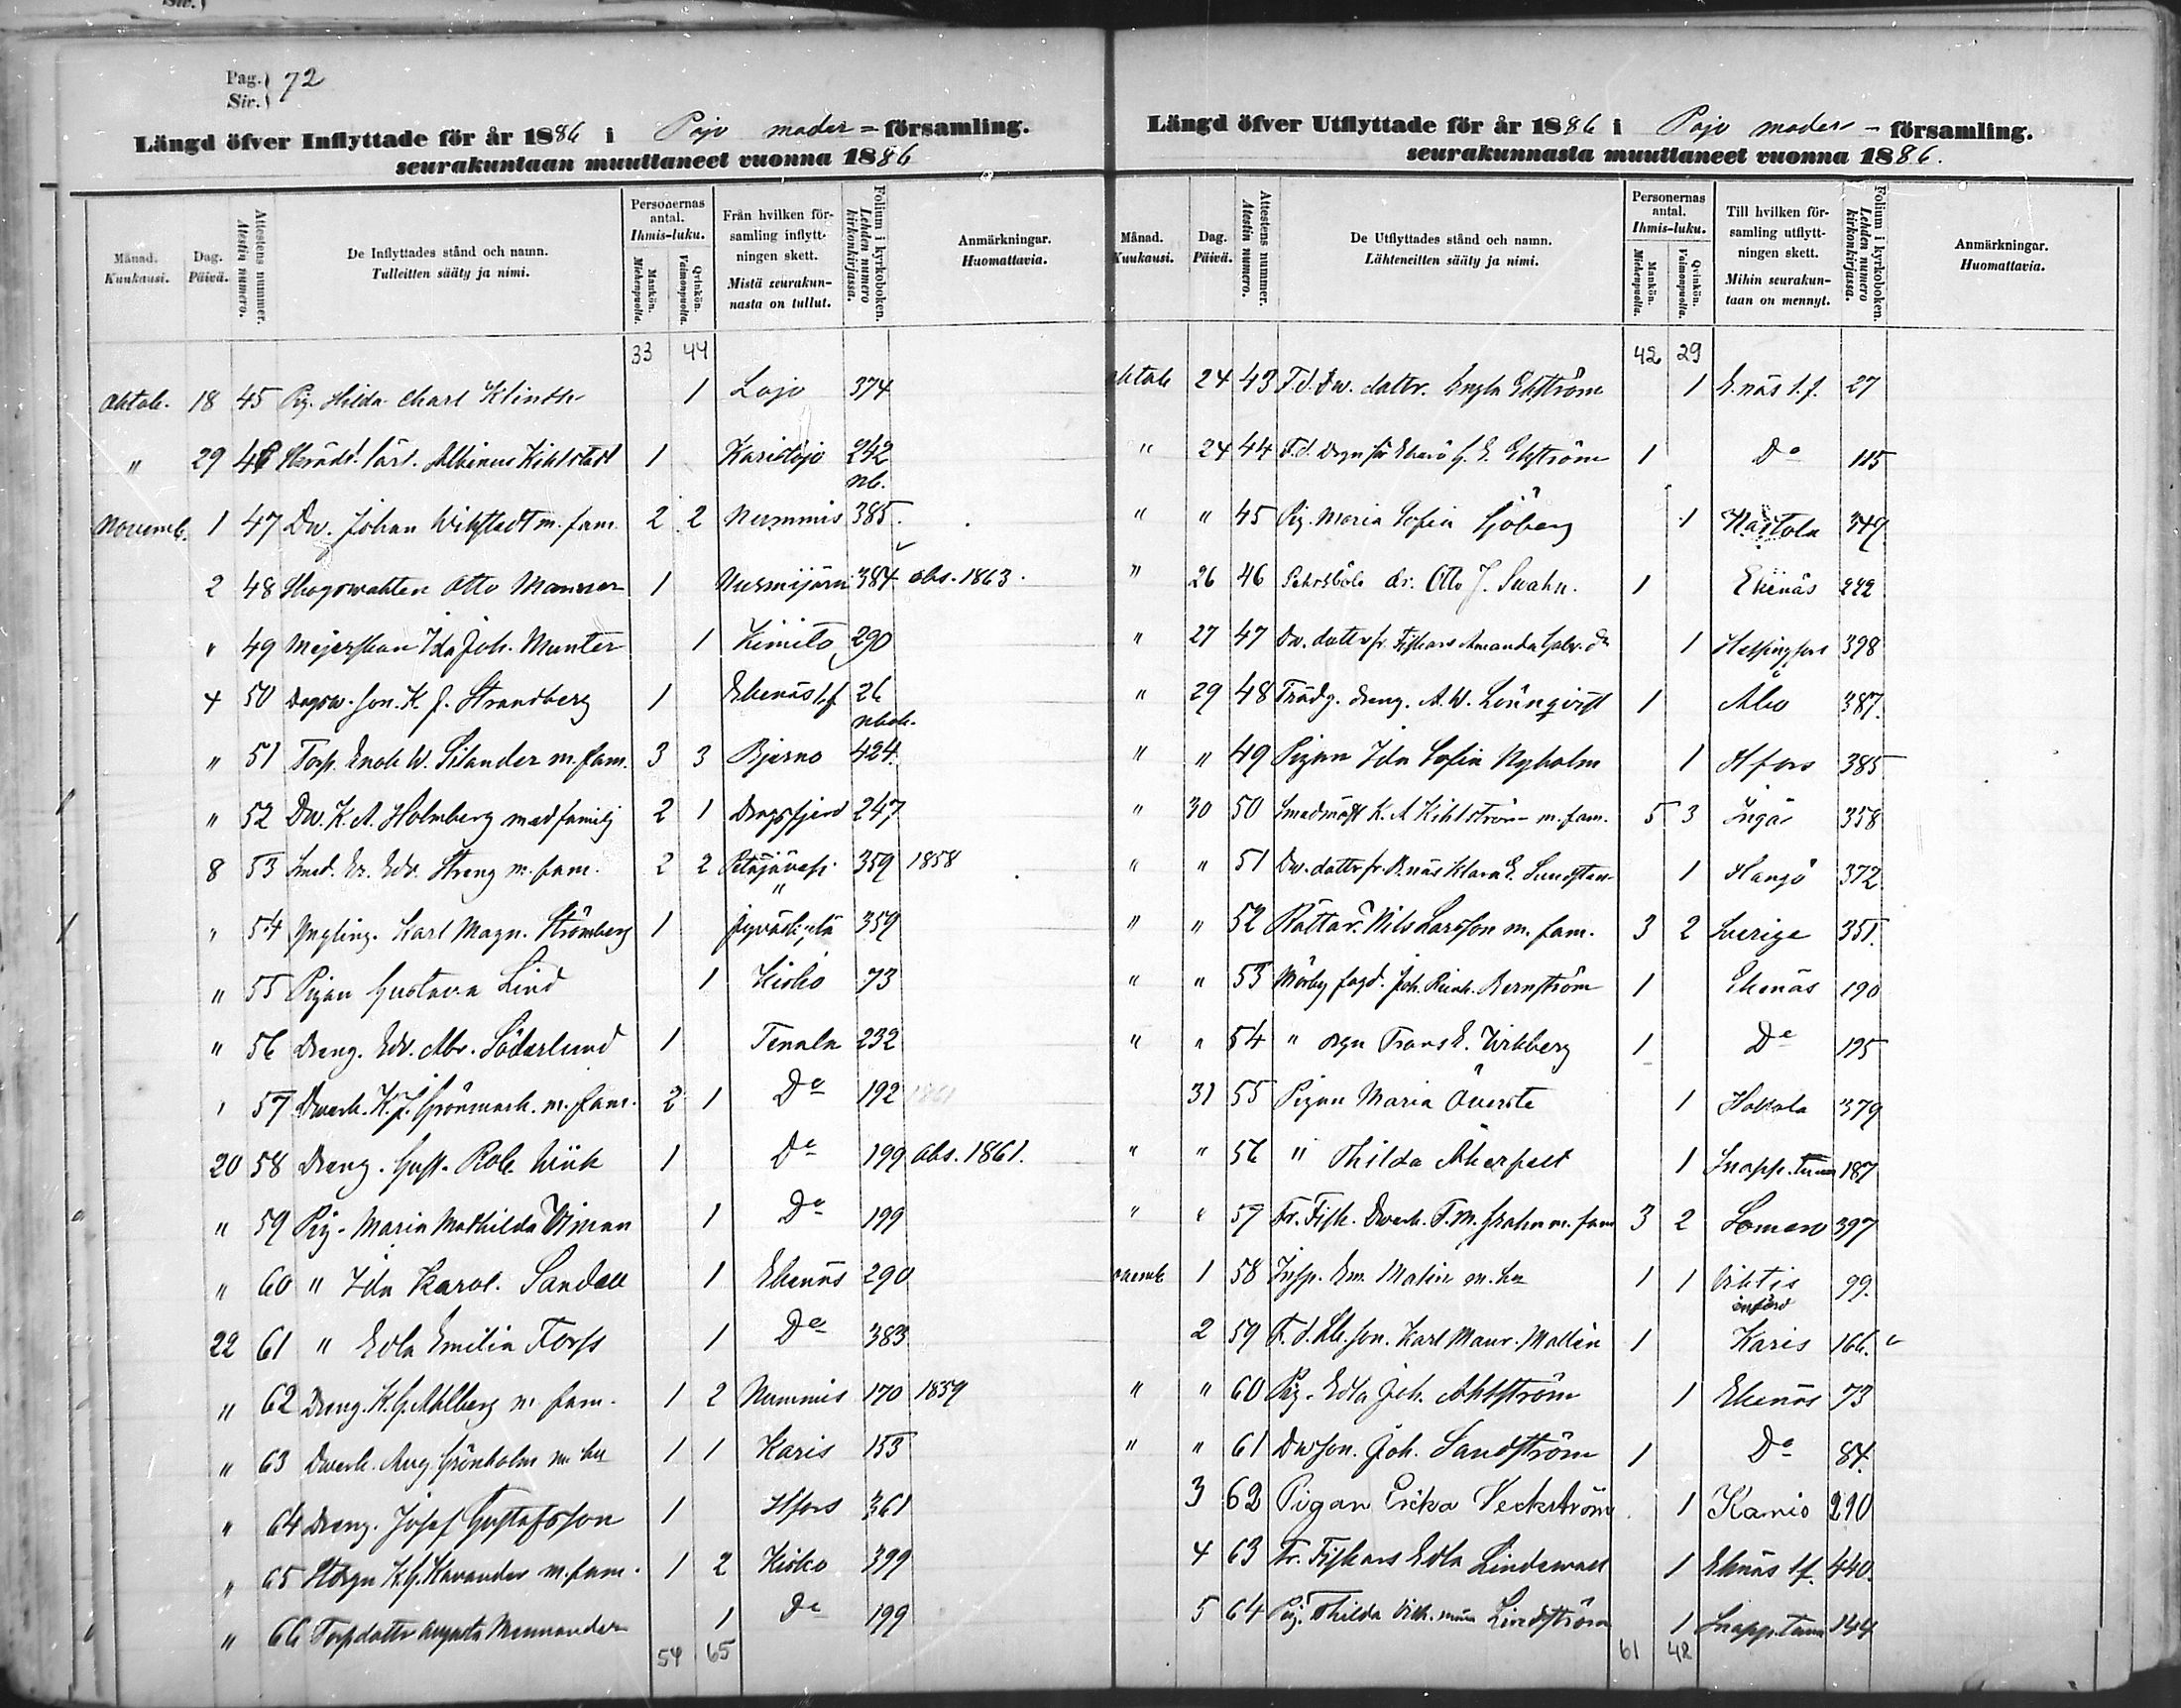 Pag. 72
Sir.
Längd öfver Inflyttade för år 1886 i Pojo moder-församling.
seurakuntaan muuttaneet vuonna 1886
Månad. Kuukausi. Dag. Päivä. Attestens nummer. Atestin numero. De Inflyttades stånd och namn. Tulleitten sääty ja nimi. Personernas antal. Ihmis-luku. Mankön. Miehenpuolia. Qvinkön. Vaimonpuolia. Från hvilken församling inflyttningen skett. Mistä seurakunnasta on tullut. Folium i kyrkoboken. Lehden numero kirkonkirjassa. Anmärkningar. Huomattavia.
33 44
Oktob. 18 45 Pig. Hilda Charl Klinth 1 Lojo 374
" 29 46 Albinus Kihlstedt 1 Karislojo 242 nb.
Novemb. 1 47 Dw. Johan Wikstedt m. fam. 2 2 Nummis 385.
2 48 Skogswakten Otto Manner 1 Nurmijärvi 384 obs. 1863.
" 49 Mejerskan Ida Joh. Munter 1 Kimito 290
4 50 Dagsw. son. K. J. Strandberg 1 Ekenäs lf 26
" 51 Torp. Enok W. Silander m. fam. 3 3 Bjerno 424.
" 52 Dw. K. A. Holmberg med familj 2 1 Dragsfjerd 247
8 53 Smed. Er. Edv. Streng m. fam. 2 2 Petäjävesi 359 1858
" 54 Yngling. Karl Magn. Strömberg 1 Jyväskylä 359
" 55 Pigan Gustava Lind 1 Kisko 73
" 56 Dreng. Edv. Abr. Söderlund 1 Tenala 232
" 57 Dwerk. K. J. Grönmark. m. fam. 2 1 Do 192 1861
20 58 Dreng. Gust. Rob. Wiik 1 Do 199 obs. 1861.
" 59 Pig. Maria Mathilda Wiman 1 Do 199
" 60 " Ida Karol. Sandell 1 Ekenäs 290
22 61 " Edla Emilia Forss 1 Do 383
" 62 Dreng. K. G. Ahlberg m. fam. 1 2 Nummis 170 1859
" 63 Dwerk. Aug. Grönholm m. hu 1 1 Karis 153
" 64 Dreng. Josef Gustafsson 1 Hfors 361
" 65 K. G. Kavander m. fam. 1 2 Kisko 399
" 66 Torpdotter Augusta Mennander 1 Do 199
54 65
Längd öfver Utflyttade för år 1886 i Pojo moder-församling.
seurakunnasta muuttaneet vuonna 1886.
Månad. Kuukausi. Dag. Päivä. Attestens nummer. Atestin numero. De Utflyttades stånd och namn. Lähteneitten sääty ja nimi. Personernas antal. Ihmis-luku. Mankön. Miehenpuolia. Qvinkön. Vaimonpuolia. Till hvilken församling utflyttningen skett. Mihin seurakuntaan on mennyt. Folium i kyrkoboken. Lehden numero kirkonkirjassa. Anmärkningar. Huomattavia.
42 29
Oktob 24 43 F.d. Dw. dottr. Engla Ekström 1 E.näs l.f. 27
" 24 44 F.d. G. E. Ekström 1 Do 115
" " 45 Pig. Maria Sofia Sjöberg 1 Nastola 349.
" 26 46 dr. Otto J. Swahn. 1 Ekenäs 222
" 27 47 Dw. dottr fr. Fiskars Amanda 1 Helsingfors 398
" 29 48 Trädg. dreng. A. W. Lönnqvist 1 Åbo 387.
" " 49 Pigan Ida Sofia Nyholm 1 Hfors 385
" 30 50 Smedmäst K. A Kihlström m. fam. 5 3 Ingå 358
" " 51 Dw. dottr fr. B.näs Klara E. Sundsten 1 Hangö 372.
" " 52 Rättar. Nils Larsson m. fam. 3 2 Sverige 351.
" " 53 Mörby fogd. Joh. Reinh. Bernström 1 Ekenäs 190
" " 54 " Frans E. Wikberg 1 Do 195
31 55 Pigan Maria Öwerste 1 Hollola 379
" " 56 " Thilda Åkerfelt 1 Snapp.tuna 187
" " 57 Fr. Fisk. Dwerk. F. M. Grahn m. fam 3 2 Somero 397
novemb 1 58 Insp. Em. Malin m. hu 1 1 Wihtis 99.
2 59 F. d. son. Karl Maur. Mallén 1 Karis 166.
" " 60 Pig. Edla Joh. Ahlström 1 Ekenäs 73
" " 61 Dwson. Joh. Sandström 1 Do 84.
3 62 Pigan Erika Veckström 1 Karis 290
4 63 Fr. Fiskars Edla Lindewall 1 Eknäs lf. 440.
5 64 Pig. Thilda Lindström 1 Snapp.tuna 144
61 42